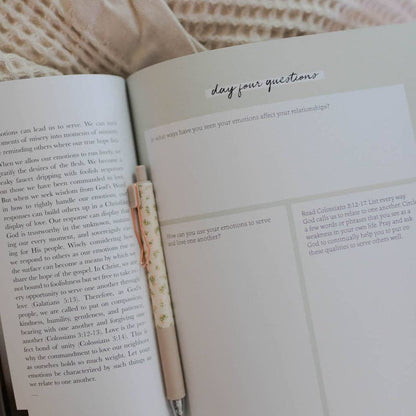 otions can lead us to serve. We can turn
oments of misery into moments of ministry
reminding others where our true hope is
When we allow our emotions to run freely, we
gratify the desires of the flesh. We become a
eaky faucet dripping with foolish responses
on those we have been commanded to love.
But when we seek wisdom from God's Word
in how to rightly handle our emotions, our
responses can build others up in a Christlike
display of love. Our response can display that
God is trustworthy in the unknown, sustain-
ing our every moment, and sovereignly car-
ing for His people. Wisely considering how
we respond to others as our emotions rise to
the surface can become a means by which we
share the hope of the gospel. In Christ, we are
not bound to foolishness but we free to take ev-
ery opportunity to serve one another through
love (Galatians 5:13). Therefore, as God's
people, we are called to put on compassion,
kindness, humility, gentleness, and patience,
bearing with one another and forgiving one
another (Colossians 3:12-13). Love is the per-
fect bond of unity (Colossians 3:14). This is
why the commandment to love our neighbors
as ourselves holds so much weight. Let your
emotions be characterized by such things as
we relate to one another.
day four questions
In what ways have you seen your emotions affect your relationships?
How can you use your emotions to serve
and love one another?
Read Colossians 3:12-17. List every way
God calls us to relate to one another. Circle
a few words or phrases that you see as a
weakness in your own life. Pray and ask
God to continually help you to put on
these qualities to serve others well.